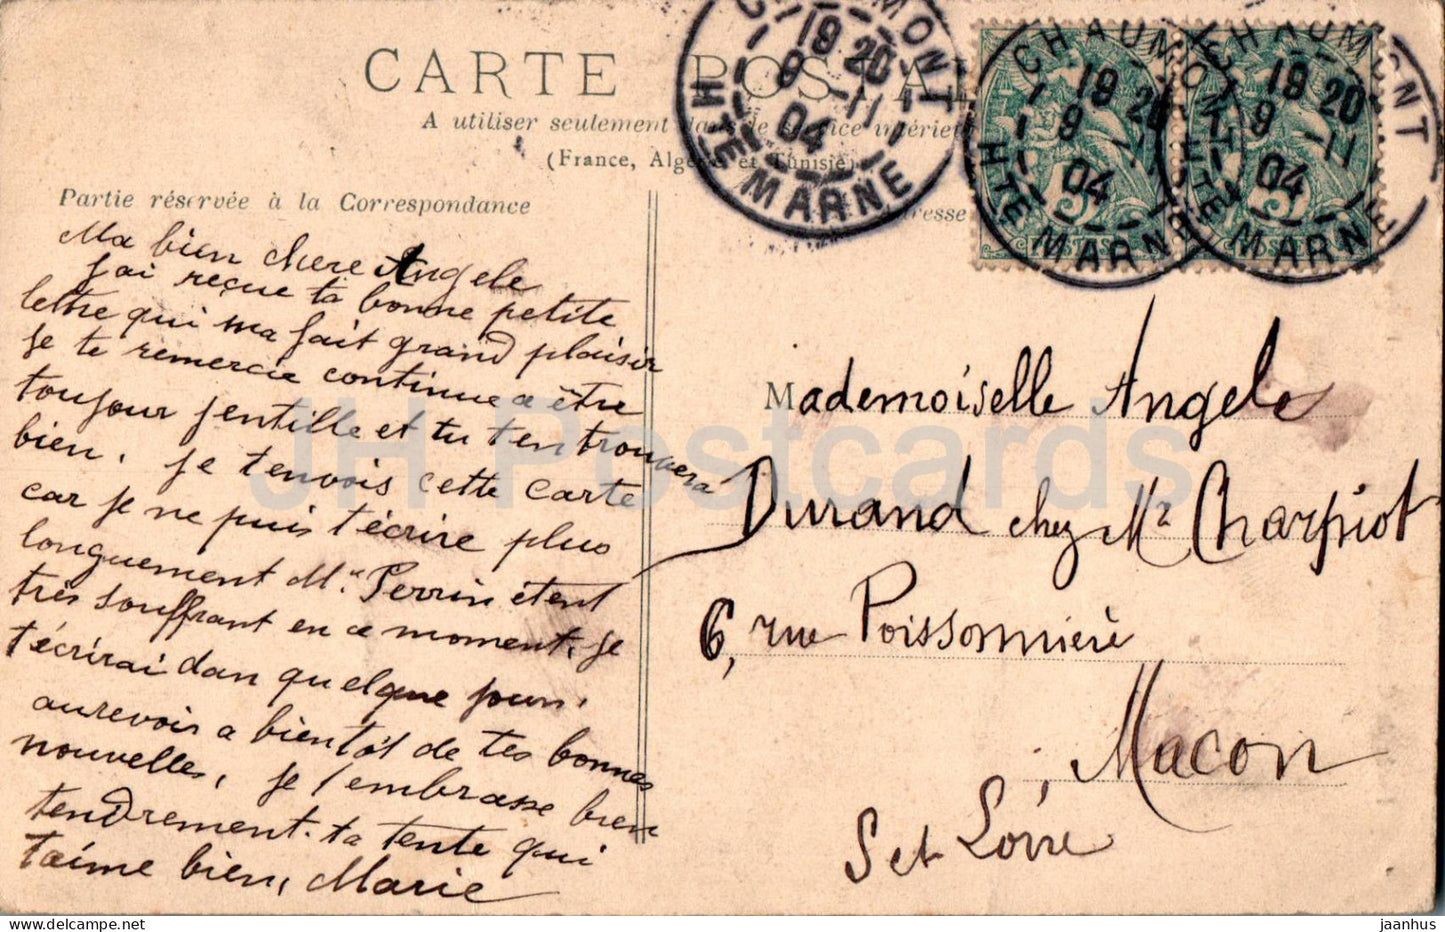 CARTE POSTAL
A utiliser seulement dans le service intérieur
(France, Algérie et Tunisie)
Partie réservée à la Correspondance
Ma bien chere Angele
j'ai reçue ta bonne petite
lettre qui ma fait grand plaisir
Je te remercie continue a être
toujour jentille et tu ten trouvera
bien. Je tenvois cette carte
car je ne puis t'écrire plus
longuement M. Perrin étent
très souffrant en ce moment, je
t'écrirai dan quelque jours.
aurevoir a bientôt de tes bonnes
nouvelles, je t'embrasse bien
tendrement ta tente qui
t'aime bien, Marie
CHAUMONT
19 20
9 -11
04
HTE MARNE
CHAUMONT
19 20
9 -11
04
HTE MARNE
CHAUMONT
19 20
9 -11
04
HTE MARNE
5
POSTES
5
POSTES
Mademoiselle Angele
Durand chez Mr Charpiot
6, rue Poissonnière
Macon
S et Loire
JH Postcards
jaanhus @ delcampe.net